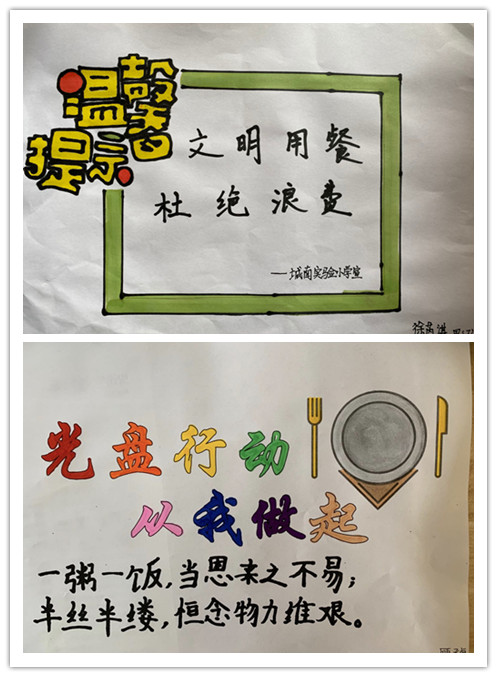 温馨
提示
文明用餐
杜绝浪费
——城南实验小学宣
光盘行动
从我做起
一粥一饭,当思来之不易;
半丝半缕,恒念物力维艰。